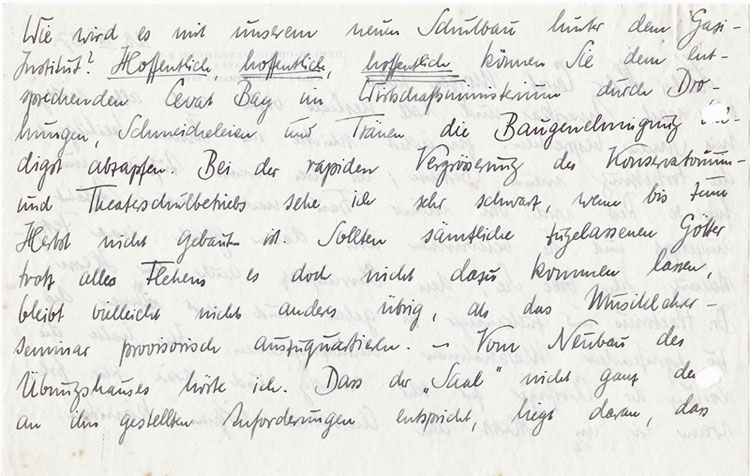 Wie wird es mit unserem neuen Schulbau hinter dem Gasi-
Institut? Hoffentlich, hoffentlich, hoffentlich können Sie dem ent-
sprechenden Cevat Bay im Wirtschaftsministerium durch Dro-
hungen, Schmeicheleien und Tränen die Baugenehmigung
digst abzapfen. Bei der rapiden Vergrösserung des Konservatorium-
und Theaterschulbetriebs sehe ich sehr schwarz, wenn bis zum
Herbst nicht gebaut ist. Sollten sämtliche zugelassenen Götter
trotz alles Flehens es doch nicht dazu kommen lassen,
bleibt vielleicht nicht anders übrig, als das Musiklehrer-
seminar provisorisch auszuquartieren. – Vom Neubau des
Übungshauses hörte ich. Dass der „Saal" nicht ganz den
an ihn gestellten Anforderungen entspricht, liegt daran, dass